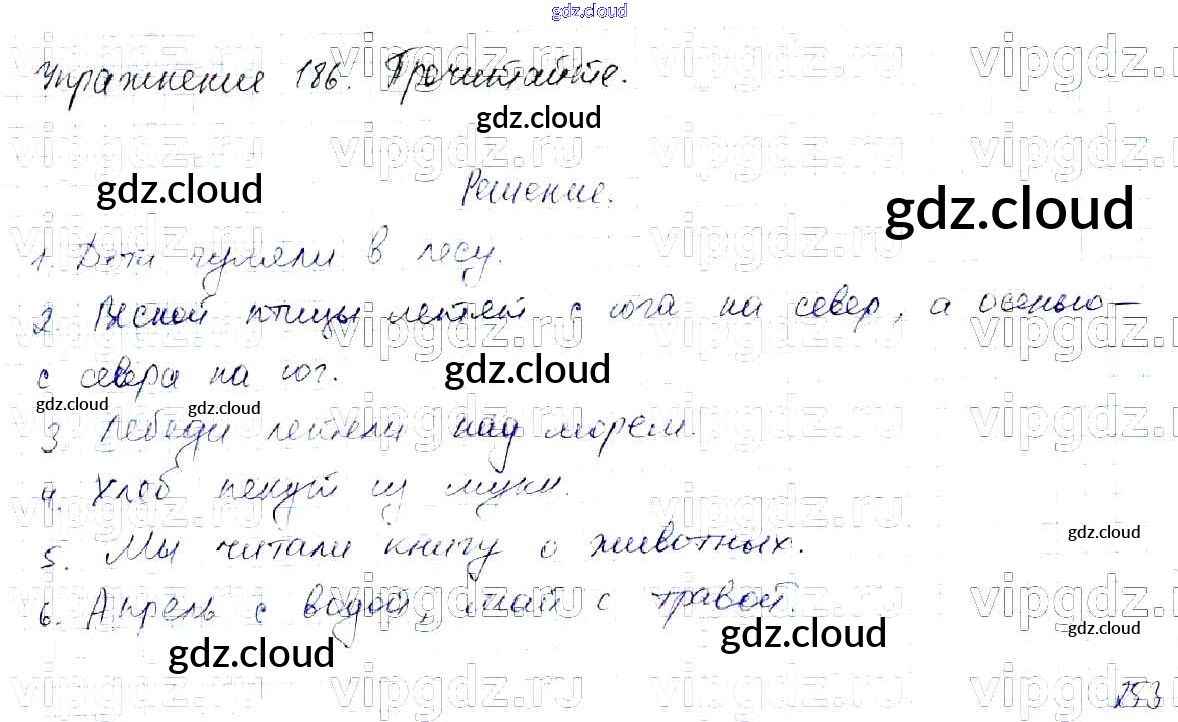 gdz.cloud
Упражнение 186. Прочитайте.
gdz.cloud
Решение.
gdz.cloud
gdz.cloud
1. Дети гуляли в лесу.
2. Весной птицы летят с юга на север, а осенью —
с севера на юг.
gdz.cloud
gdz.cloud
gdz.cloud
3. Лебеди летели над морем.
4. Хлеб пекут из муки.
5. Мы читали книгу о животных.
gdz.cloud
6. Апрель с водой, май с травой.
gdz.cloud
gdz.cloud
gdz.cloud
253
vipgdz.ru